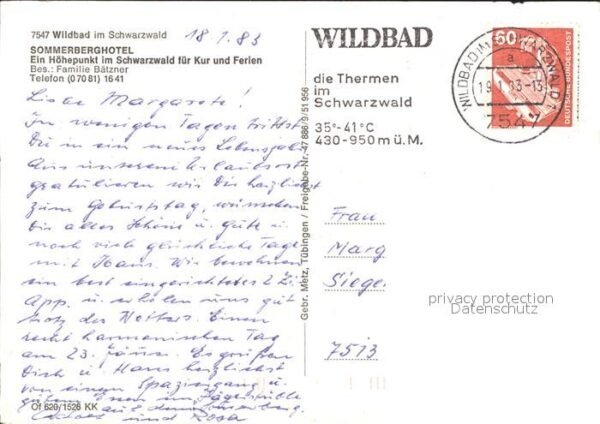 7547 Wildbad im Schwarzwald
18.1.83
SOMMERBERGHOTEL
Ein Höhepunkt im Schwarzwald für Kur und Ferien
Bes.: Familie Bätzner
Telefon (0 70 81) 16 41
Liebe Margarete!
In wenigen Tagen trittst
Du in ein neues Lebensjahr
Aus unserem Urlaubsort
gratulieren wir Dir herzlichst
zum Geburtstag, wünschen
Dir alles Schöne u. Gute u.
noch viel glückliche Tage
mit Hans. Wir bewohnen
ein best eingerichtetes 2 Zi.
App. u. erholen uns gut
trotz des Wetters. Einen
recht harmonischen Tag
am 23. Jänn. Es grüßen
Dich u. Hans herzlichst
von einem Spaziergang u.
gutem Essen im Jägerstüble
auf dem Sommerberg.
und Rosa
Of 620/1526 KK
Gebr. Metz, Tübingen / Freigabe-Nr. 47 886/9/51 956
WILDBAD
die Thermen
im
Schwarzwald
35°-41°C
430-950 m ü. M.
WILDBAD IM SCHWARZWALD 1
a
19.1.83-13
7547
60
DEUTSCHE BUNDESPOST
Frau
Marg
Siege
7513
privacy protection
Datenschutz